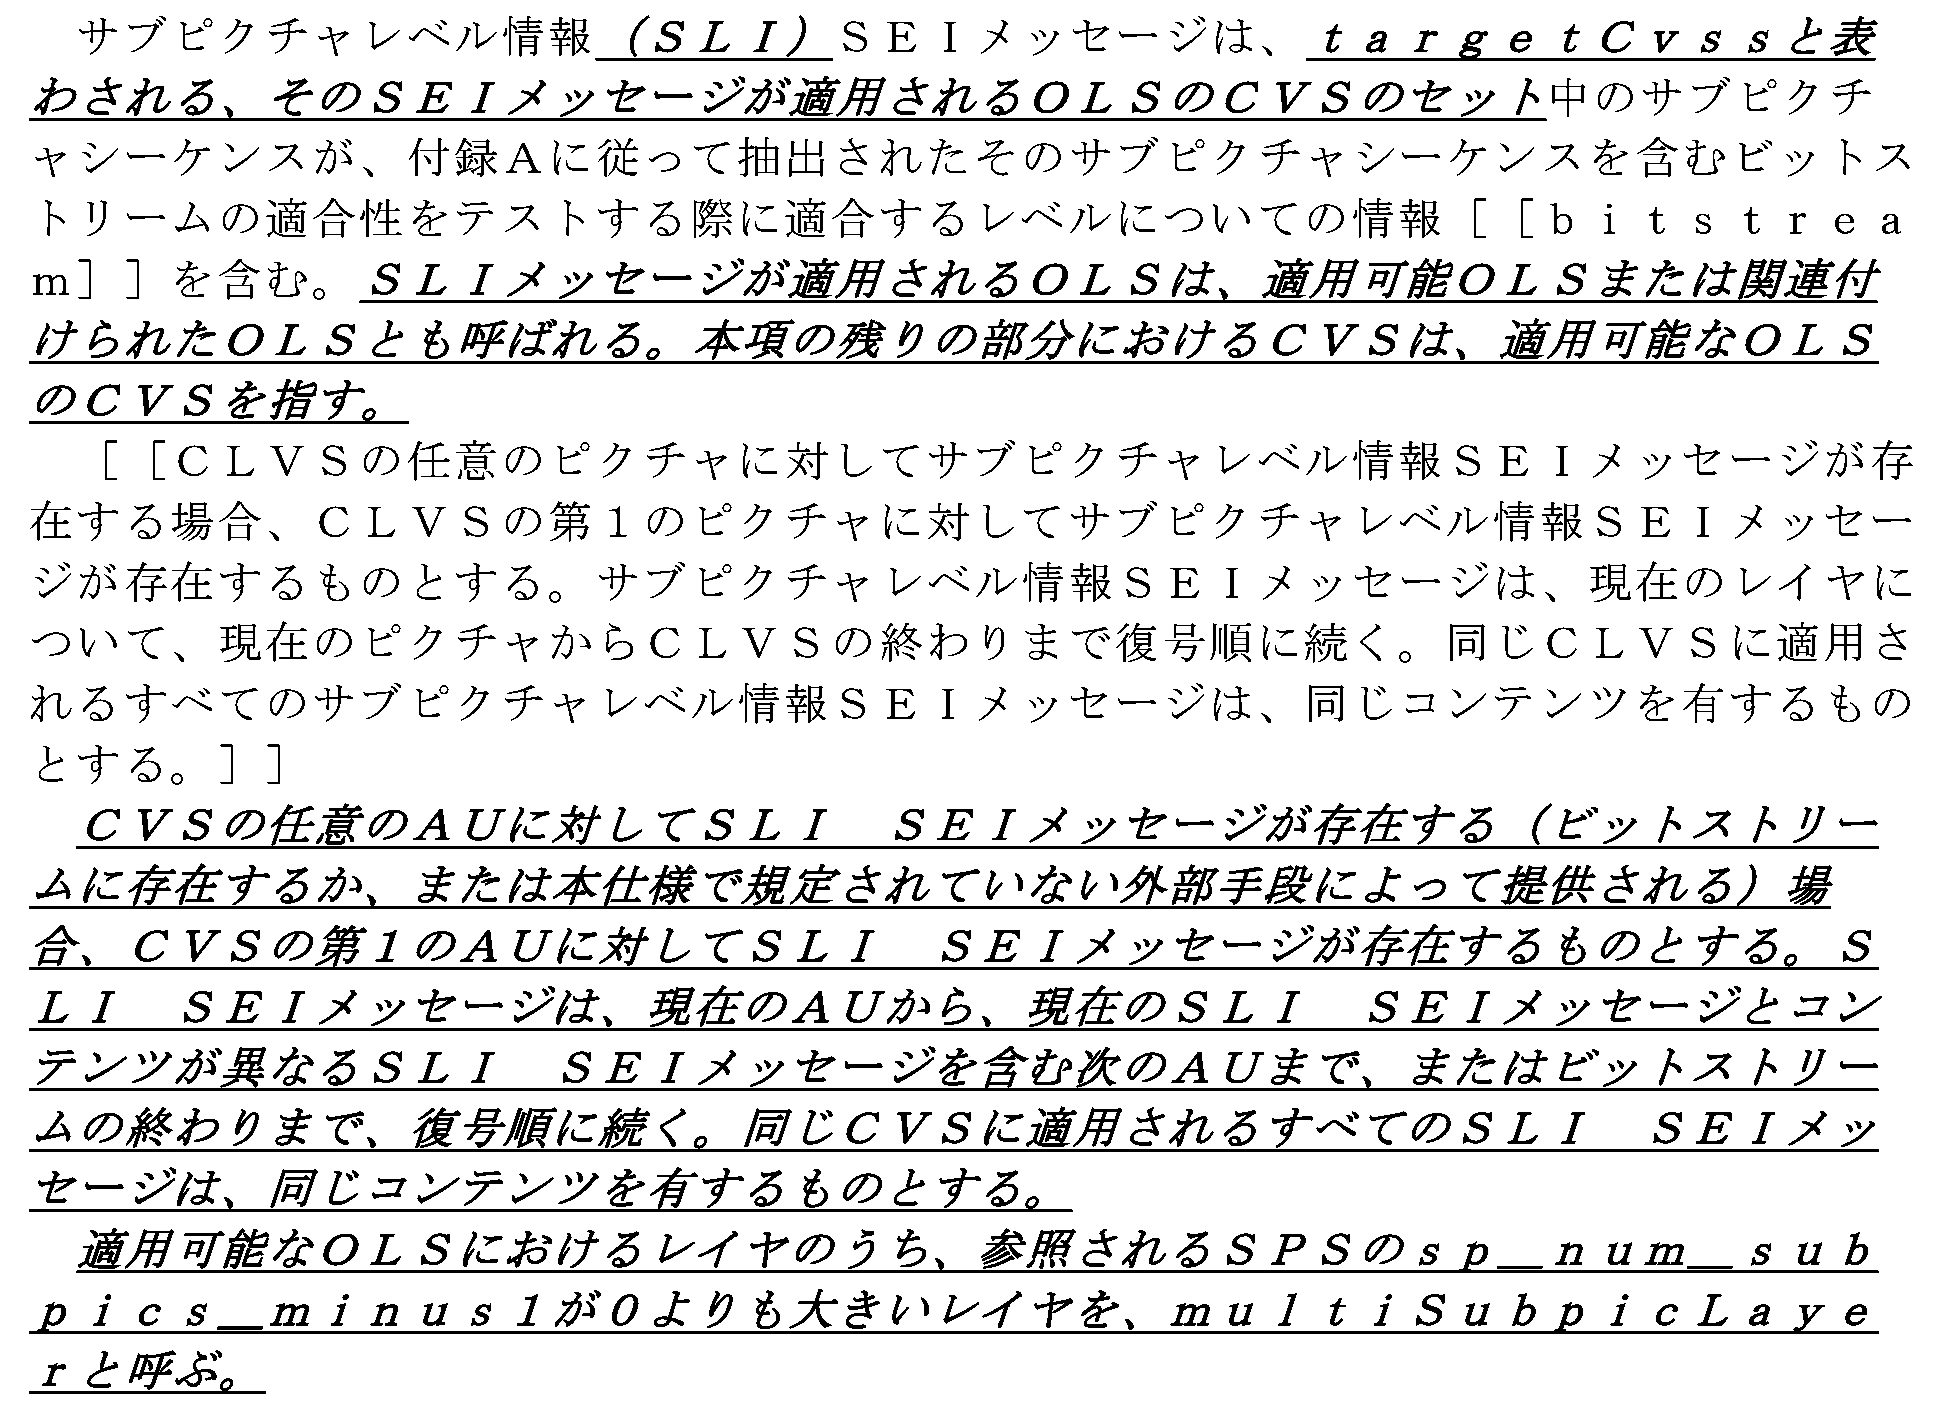 サブピクチャレベル情報（ＳＬＩ）ＳＥＩメッセージは、ｔａｒｇｅｔＣｖｓｓと表
わされる、そのＳＥＩメッセージが適用されるＯＬＳのＣＶＳのセット中のサブピクチ
ャシーケンスが、付録Ａに従って抽出されたそのサブピクチャシーケンスを含むビットス
トリームの適合性をテストする際に適合するレベルについての情報［［ｂｉｔｓｔｒｅａ
ｍ］］を含む。ＳＬＩメッセージが適用されるＯＬＳは、適用可能ＯＬＳまたは関連付
けられたＯＬＳとも呼ばれる。本項の残りの部分におけるＣＶＳは、適用可能なＯＬＳ
のＣＶＳを指す。
　［［ＣＬＶＳの任意のピクチャに対してサブピクチャレベル情報ＳＥＩメッセージが存
在する場合、ＣＬＶＳの第１のピクチャに対してサブピクチャレベル情報ＳＥＩメッセー
ジが存在するものとする。サブピクチャレベル情報ＳＥＩメッセージは、現在のレイヤに
ついて、現在のピクチャからＣＬＶＳの終わりまで復号順に続く。同じＣＬＶＳに適用さ
れるすべてのサブピクチャレベル情報ＳＥＩメッセージは、同じコンテンツを有するもの
とする。］］
　ＣＶＳの任意のＡＵに対してＳＬＩ　ＳＥＩメッセージが存在する（ビットストリー
ムに存在するか、または本仕様で規定されていない外部手段によって提供される）場
合、ＣＶＳの第１のＡＵに対してＳＬＩ　ＳＥＩメッセージが存在するものとする。Ｓ
ＬＩ　ＳＥＩメッセージは、現在のＡＵから、現在のＳＬＩ　ＳＥＩメッセージとコン
テンツが異なるＳＬＩ　ＳＥＩメッセージを含む次のＡＵまで、またはビットストリー
ムの終わりまで、復号順に続く。同じＣＶＳに適用されるすべてのＳＬＩ　ＳＥＩメッ
セージは、同じコンテンツを有するものとする。
　適用可能なＯＬＳにおけるレイヤのうち、参照されるＳＰＳのｓｐ＿ｎｕｍ＿ｓｕｂ
ｐｉｃｓ＿ｍｉｎｕｓ１が０よりも大きいレイヤを、ｍｕｌｔｉＳｕｂｐｉｃＬａｙｅ
ｒと呼ぶ。